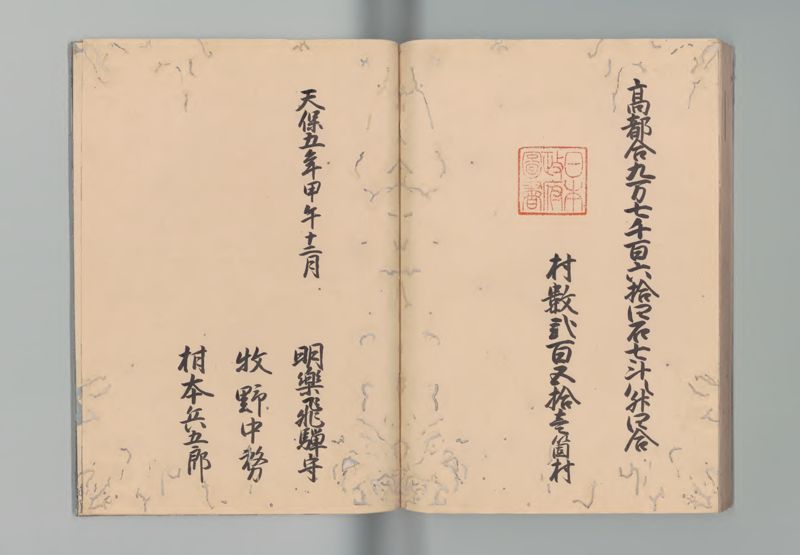 高都合九万七千百六拾四石七斗八升四合
村数弐百五拾壱箇村
日本
政府
図書
天保五年甲午十二月
明楽飛騨守
牧野中務
村本兵五郎